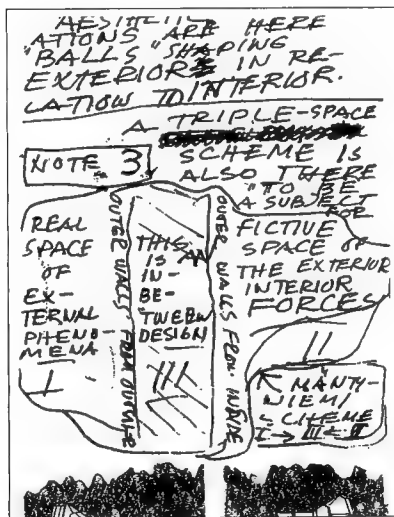 AESTHETIC
ATIONS ARE HERE
"BALLS" SHAPING
EXTERIORS IN RE-
LATION TO INTERIOR.
A TRIPLE-SPACE
SCHEME IS
ALSO THERE
"TO BE
A SUBJECT
FOR
NOTE 3
REAL
SPACE
OF
EX-
TERNAL
PHENO-
MENA
I
OUTER WALLS FROM OUTSIDE
THIS
IS AN
IN-
BE-
TWEEN
DESIGN
III
OUTER WALLS FROM INSIDE
FICTIVE
SPACE OF
THE EXTERIOR
INTERIOR
FORCES
II
MÄNTY-
NIEMI
SCHEME
I → III ← II